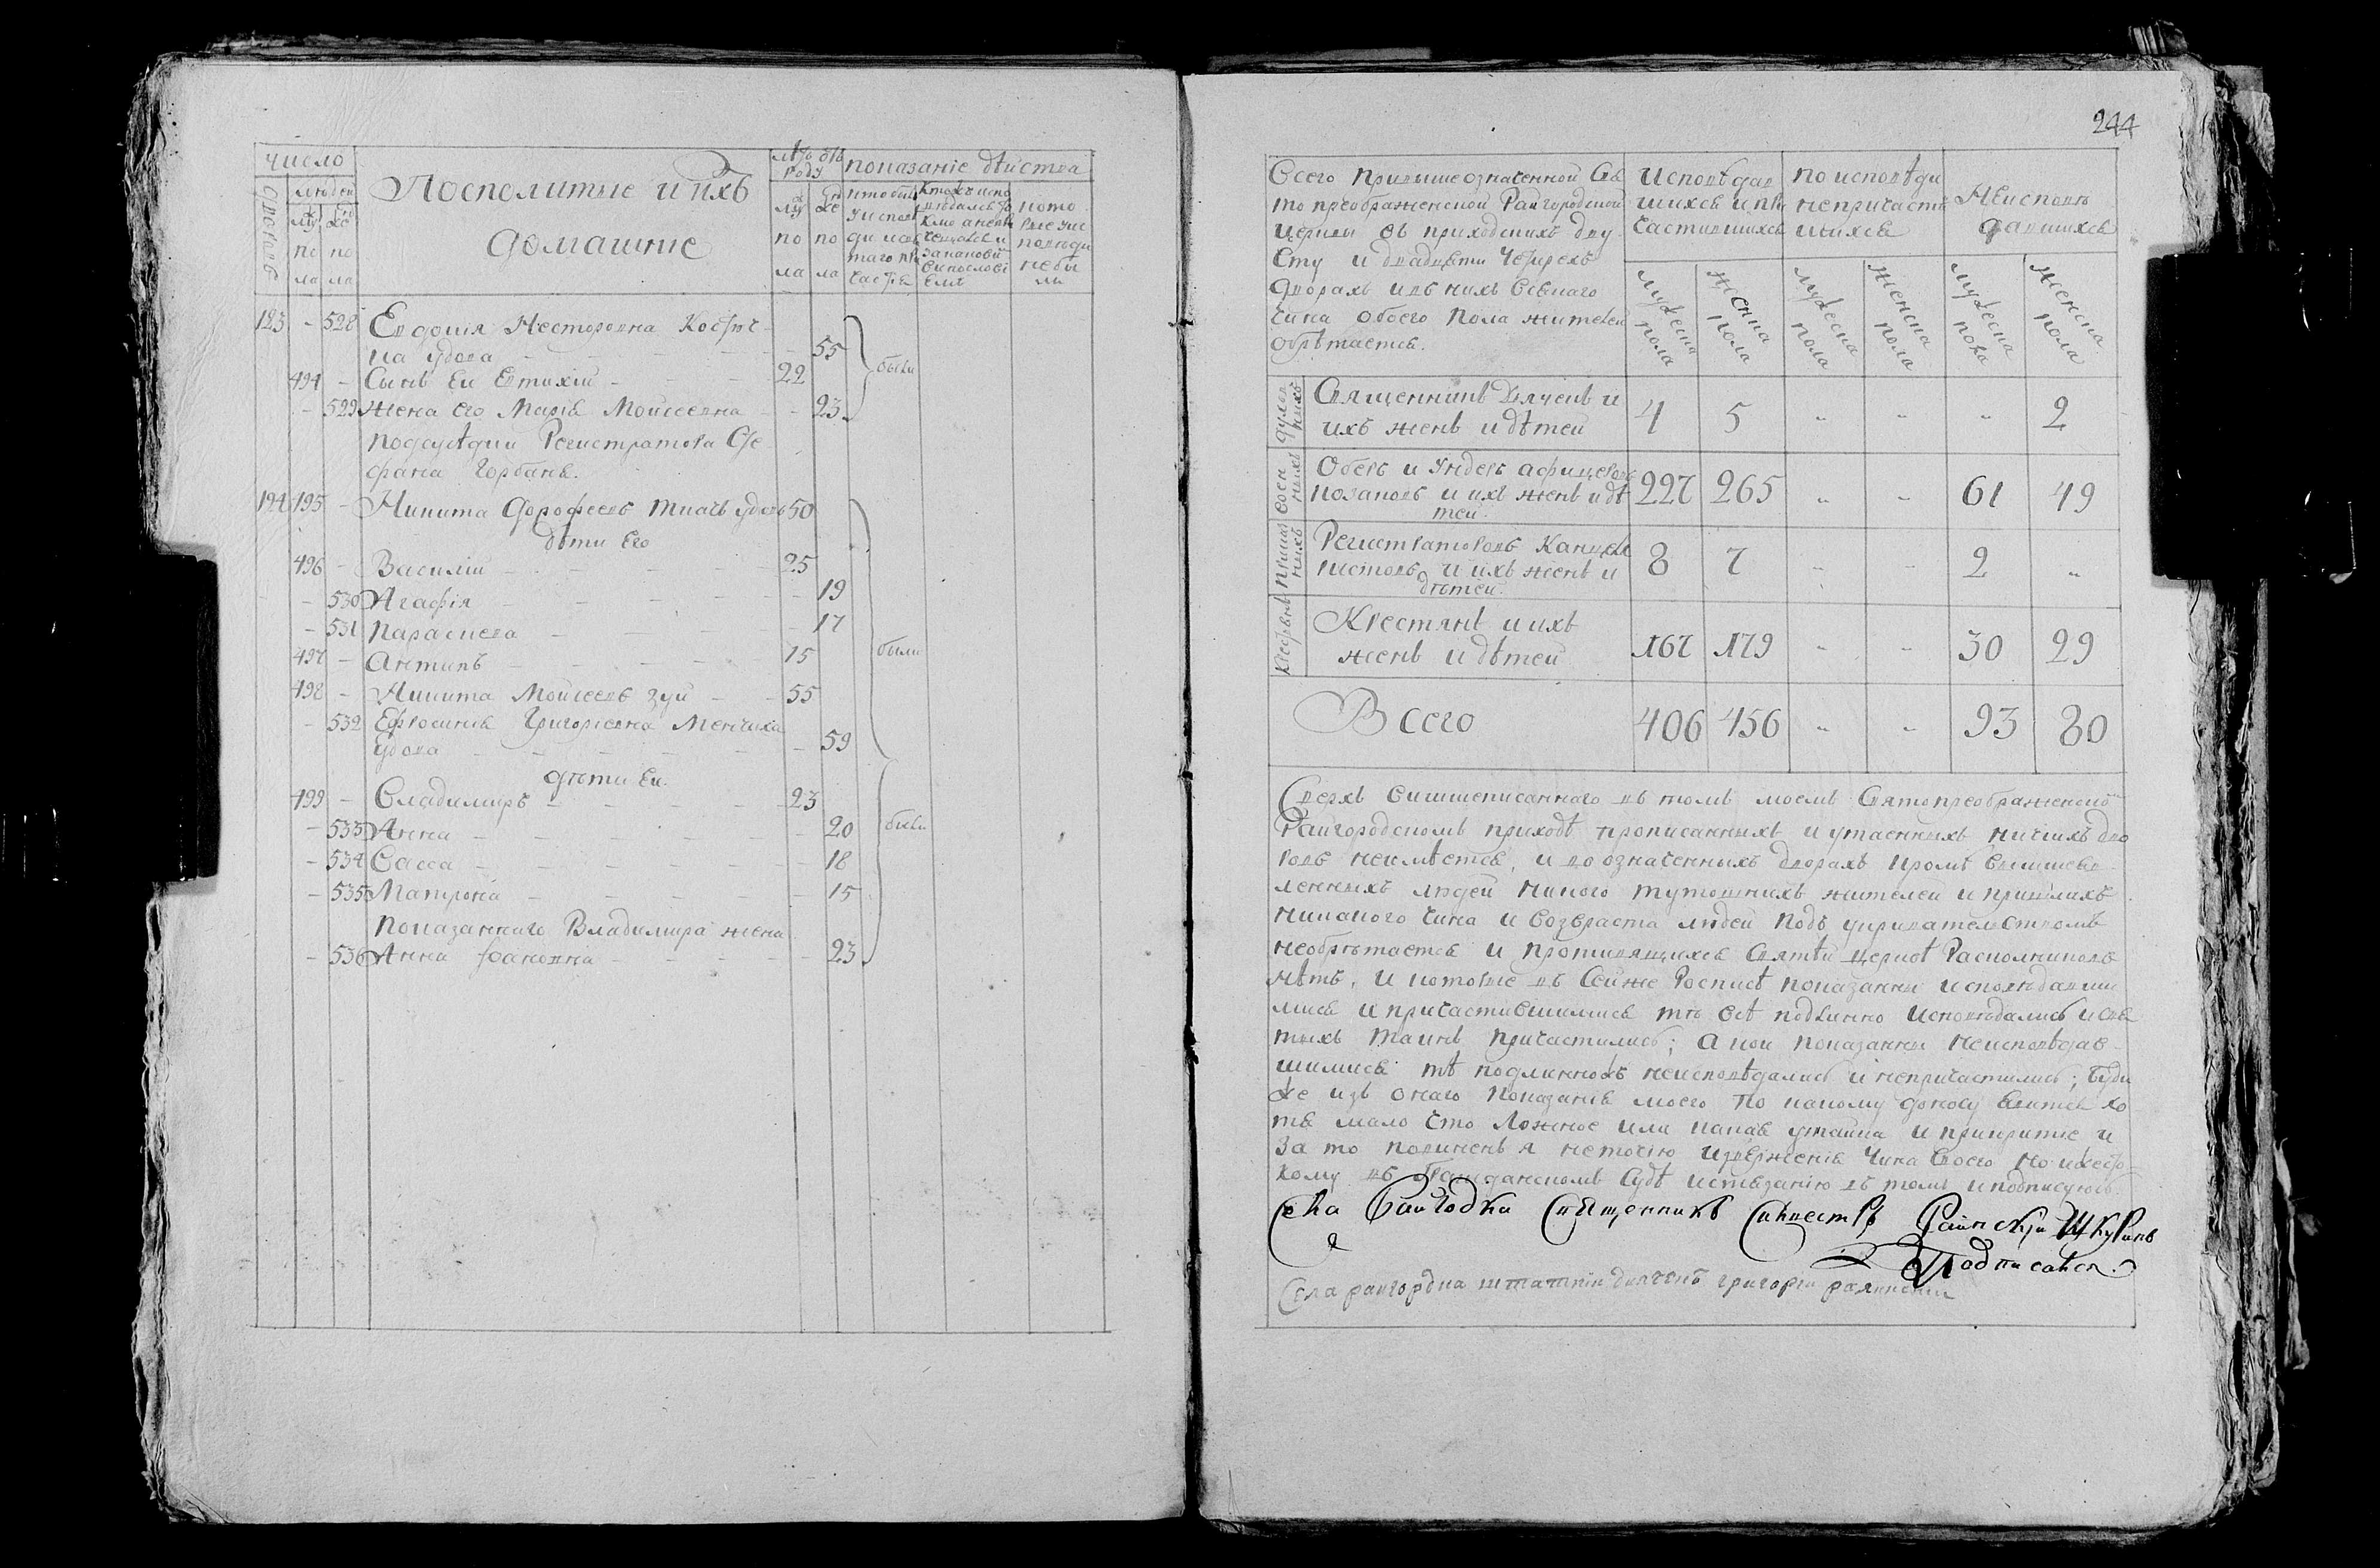 число
дворовъ
людей
му же
по по
ла ла
Посполитые и ихъ
домашние
лѣта отъ
роду
му же
по по
ла ла
показаніе дѣйства
кто были
у испове
ди и свя
таго при
частія
кото
рые у ис
поведи
не бы
ли
123 - 528 Евдокия Несторовна
на удова - 55
494 - Сынъ Ея Евтихій - 22 были
- 529 жена его Марія Мойсеевна - 23
подсуѣдки Регистратора Сте
фана Горбаня.
124 495 - Никита Дорофеевъ ткачь удовъ 50
дѣти Его
496 - Василій - 25
- 530 Агафія - 19
- 531 Параскева - 17
497 - Антипъ - 15 были
498 - Никита Мойсеевъ зуй - 55
- 532 Ефросинія Григориевна Менчиха
удова - 59
дѣти Ея.
499 - Владимиръ - 23
- 533 Анна - 20 были
- 534 Васса - 18
- 535 Матрона - 15
показаннаго Владимира жена
- 536 Анна Іоановна - 23
244
Всего при вышеозначенной Свя
то преображенской Райгородской
церкви въ приходскихъ двух
сту и двадцети четирехъ
дворахъ и въ нихъ всякаго
чина обоего пола жителей
обрѣтается.
Исповѣдав
шихся и при
частившихся
по исповѣди
непричасти
шихся
Неисповѣ
давшихся
мужеска пола
женска пола
мужеска пола
женска пола
мужеска пола
женска пола
духов
нихъ
Священникъ Дячекъ и
ихъ женъ и дѣтей
4 5 „ „ „ 2
воен
нихъ
Оберъ и ундеръ афицеровъ
козаковъ и ихъ женъ и дѣ
тей.
227 265 „ „ 61 49
приказ
нихъ
Регистраторовъ Канцеля
ристовъ и ихъ женъ и
дѣтей.
8 7 „ „ 2 „
Крестянъ и ихъ
женъ и дѣтей
167 179 „ „ 30 29
Всего
406 456 „ „ 93 80
Сверхъ вишшеписаннаго въ томъ моемъ Святопреображенской
Райгородскомъ приходѣ прописанныхъ и утаенныхъ ничихъ дво
ровъ неимѣется, и во означенныхъ дворахъ кромѣ вышшеяв
ленныхъ людей никого тутошнихъ жителей и пришлихъ
никакого чина и возвраста людей подъ укривателствомъ
необрѣтается и противящихся святѣй церквѣ Расколниковъ
нѣтъ, И которые въ Сей же Росписѣ показанны исповѣдавши
мися и причастившимися тѣ всѣ подлинно исповѣдались и свя
тыхъ таинъ причастились; а кои показанны неисповѣдав
шимися тѣ подлинножъ неисповѣдались и непричастились; буди
же изъ онаго показанія моего по какому доносу явится хо
тя мало что ложное или какая утайка и прикритие и
за то повиненъ я неточію извѣрженія чина своего но и жесто
кому въ Гражданскомъ Судѣ истязанію въ томъ и подписуюсь
Села Райгодка Священникъ Силвестръ Раинскій Шкуринъ
Подписался.
Села раигородка штатній дяченъ григорій раянскій